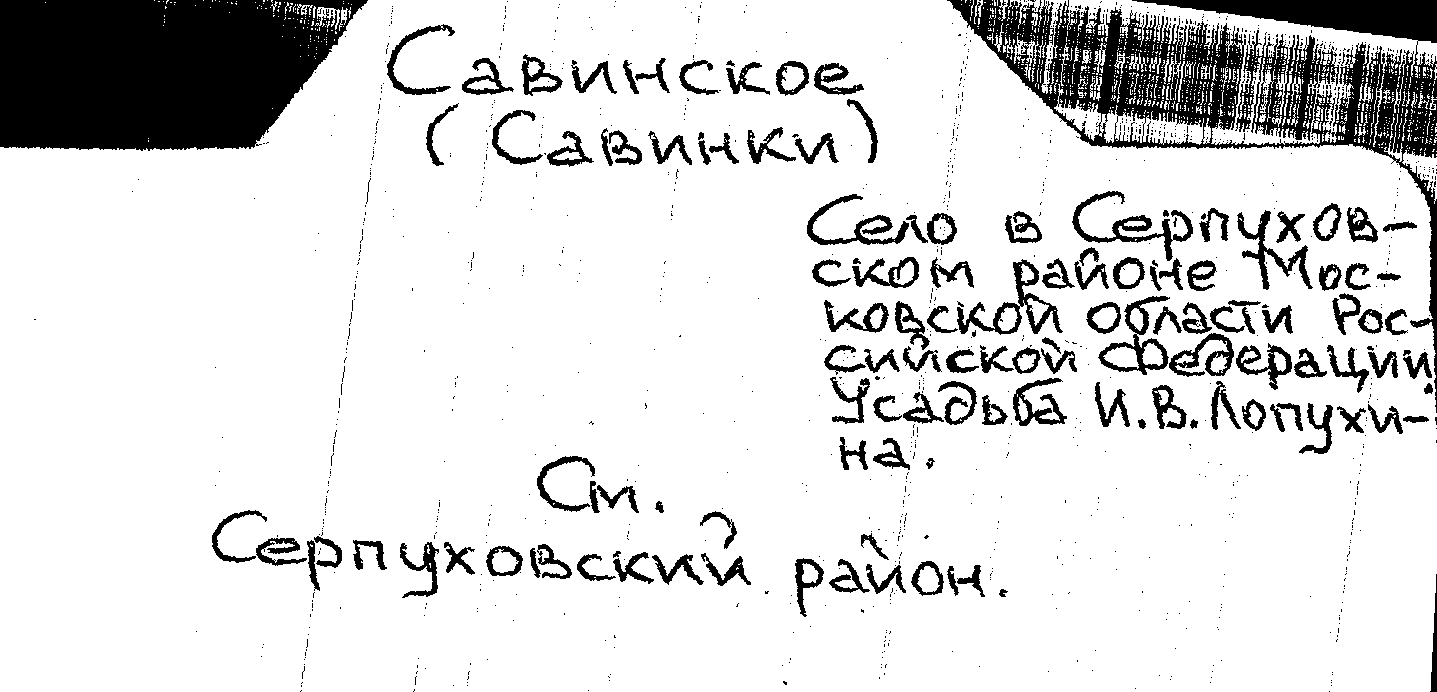 Савинское
(Савинки)
Село в Серпухов-
ском районе Мос-
ковской области Рос-
сийской Федерации.
Усадьба И.В.Лопухи-
на.
См.
Серпуховский район.